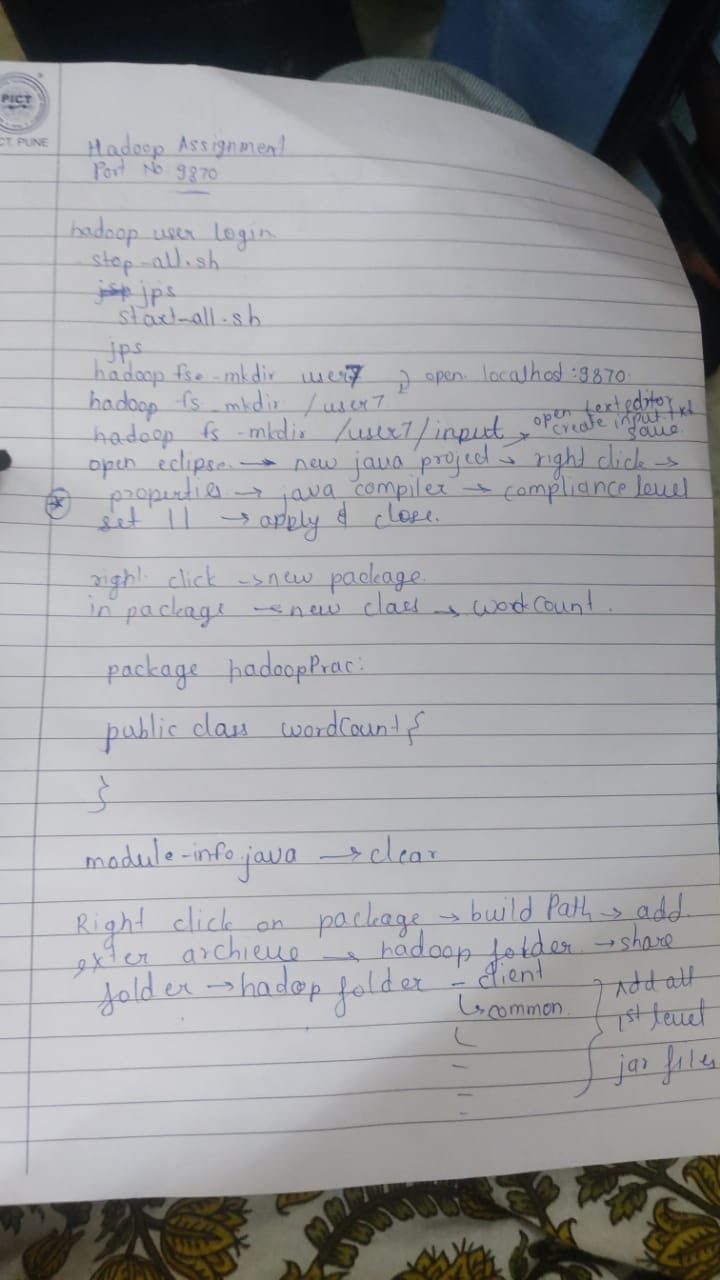 PICT
CT. PUNE
Hadoop Assignment
Port No. 9870
hadoop user login
stop-all.sh
jps
start-all.sh
jps
hadoop fs -mkdir user7 open localhost:9870
hadoop fs -mkdir /user7
hadoop fs -mkdir /user7/input → open text editor create input.txt save
open eclipse → new java project → right click →
properties → java compiler → compliance level
set 11 → apply & close.
right click → new package
in package → new class → wordCount.
package hadoopPrac;
public class wordCount {
}
module-info.java → clear
Right click on package → build Path → add
exter archieve → hadoop folder → share
folder → hadop folder - client
↳ common
Add all
1st level
jar files